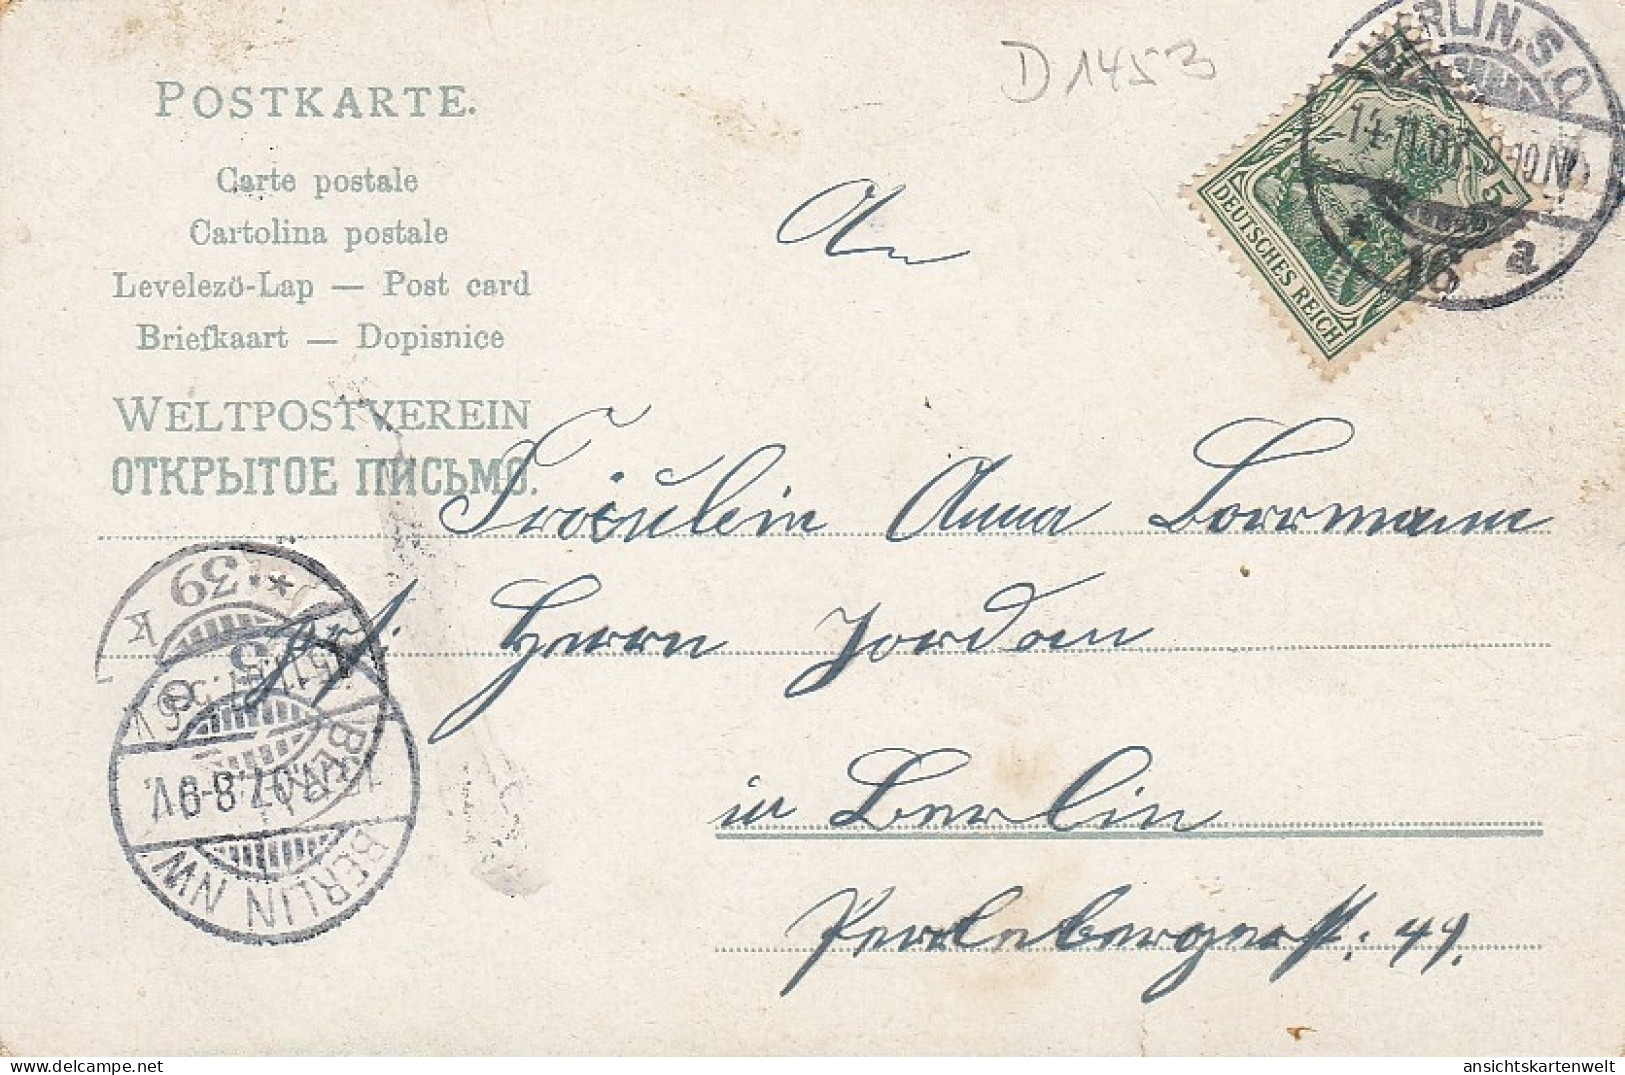 POSTKARTE.
Carte postale
Cartolina postale
Levelező-Lap — Post card
Briefkaart — Dopisnice
WELTPOSTVEREIN
ОТКРЫТОЕ ПИСЬМО.
D 1453
BERLIN. S.O.
14.11.07
16 a
5
DEUTSCHES REICH
An
Fräulein Anna Borrmann
Herrn Jordan
in Berlin
Perlebergerstr. 49.
* 39 k
07.8-9V.
BERLIN NW
ansichtskartenwelt